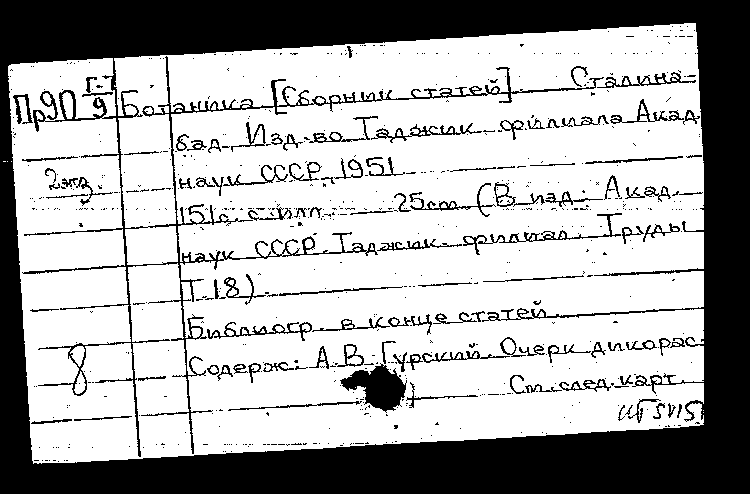 Пр90 Г-7/9 Ботаника [Сборник статей]. Сталина-
бад, Изд-во Таджик. филиала Акад.
2 экз. наук СССР, 1951
151 с. с илл. 25 cm (В изд: Акад.
наук СССР. Таджик. филиал. Труды
Т. 18).
Библиогр. в конце статей.
8 Содерж: А.В. Гурский. Очерк дикорас-
См. след. карт.